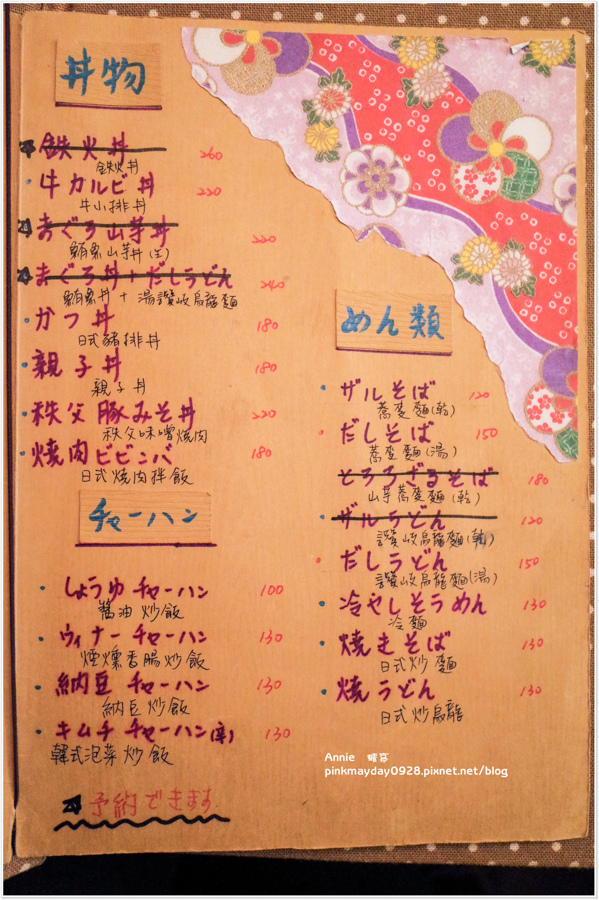 丼物
鉄火丼 260
鉄火丼
牛カルビ丼 220
牛小排丼
まぐろ山芋丼 220
鮪魚山芋丼(生)
まぐろ丼+だしうどん 240
鮪魚丼 + 湯讚岐烏龍麵
かつ丼 180
日式豬排丼
親子丼 180
親子丼
秩父豚みそ丼 220
秩父味噌燒肉
焼肉ビビンバ 180
日式燒肉拌飯
チャーハン
しょうゆチャーハン 100
醬油炒飯
ウィナーチャーハン 130
煙燻香腸炒飯
納豆チャーハン 130
納豆炒飯
キムチチャーハン(辛) 130
韓式泡菜炒飯
予約できます
めん類
ザルそば 120
蕎麥麵(乾)
だしそば 150
蕎麥麵(湯)
とろろざるそば 180
山芋蕎麥麵(乾)
ザルうどん 120
讚岐烏龍麵(乾)
だしうどん 150
讚岐烏龍麵(湯)
冷やしそうめん 130
冷麵
焼きそば 130
日式炒麵
焼うどん 130
日式炒烏龍
Annie
pinkmayday0928.pixnet.net/blog